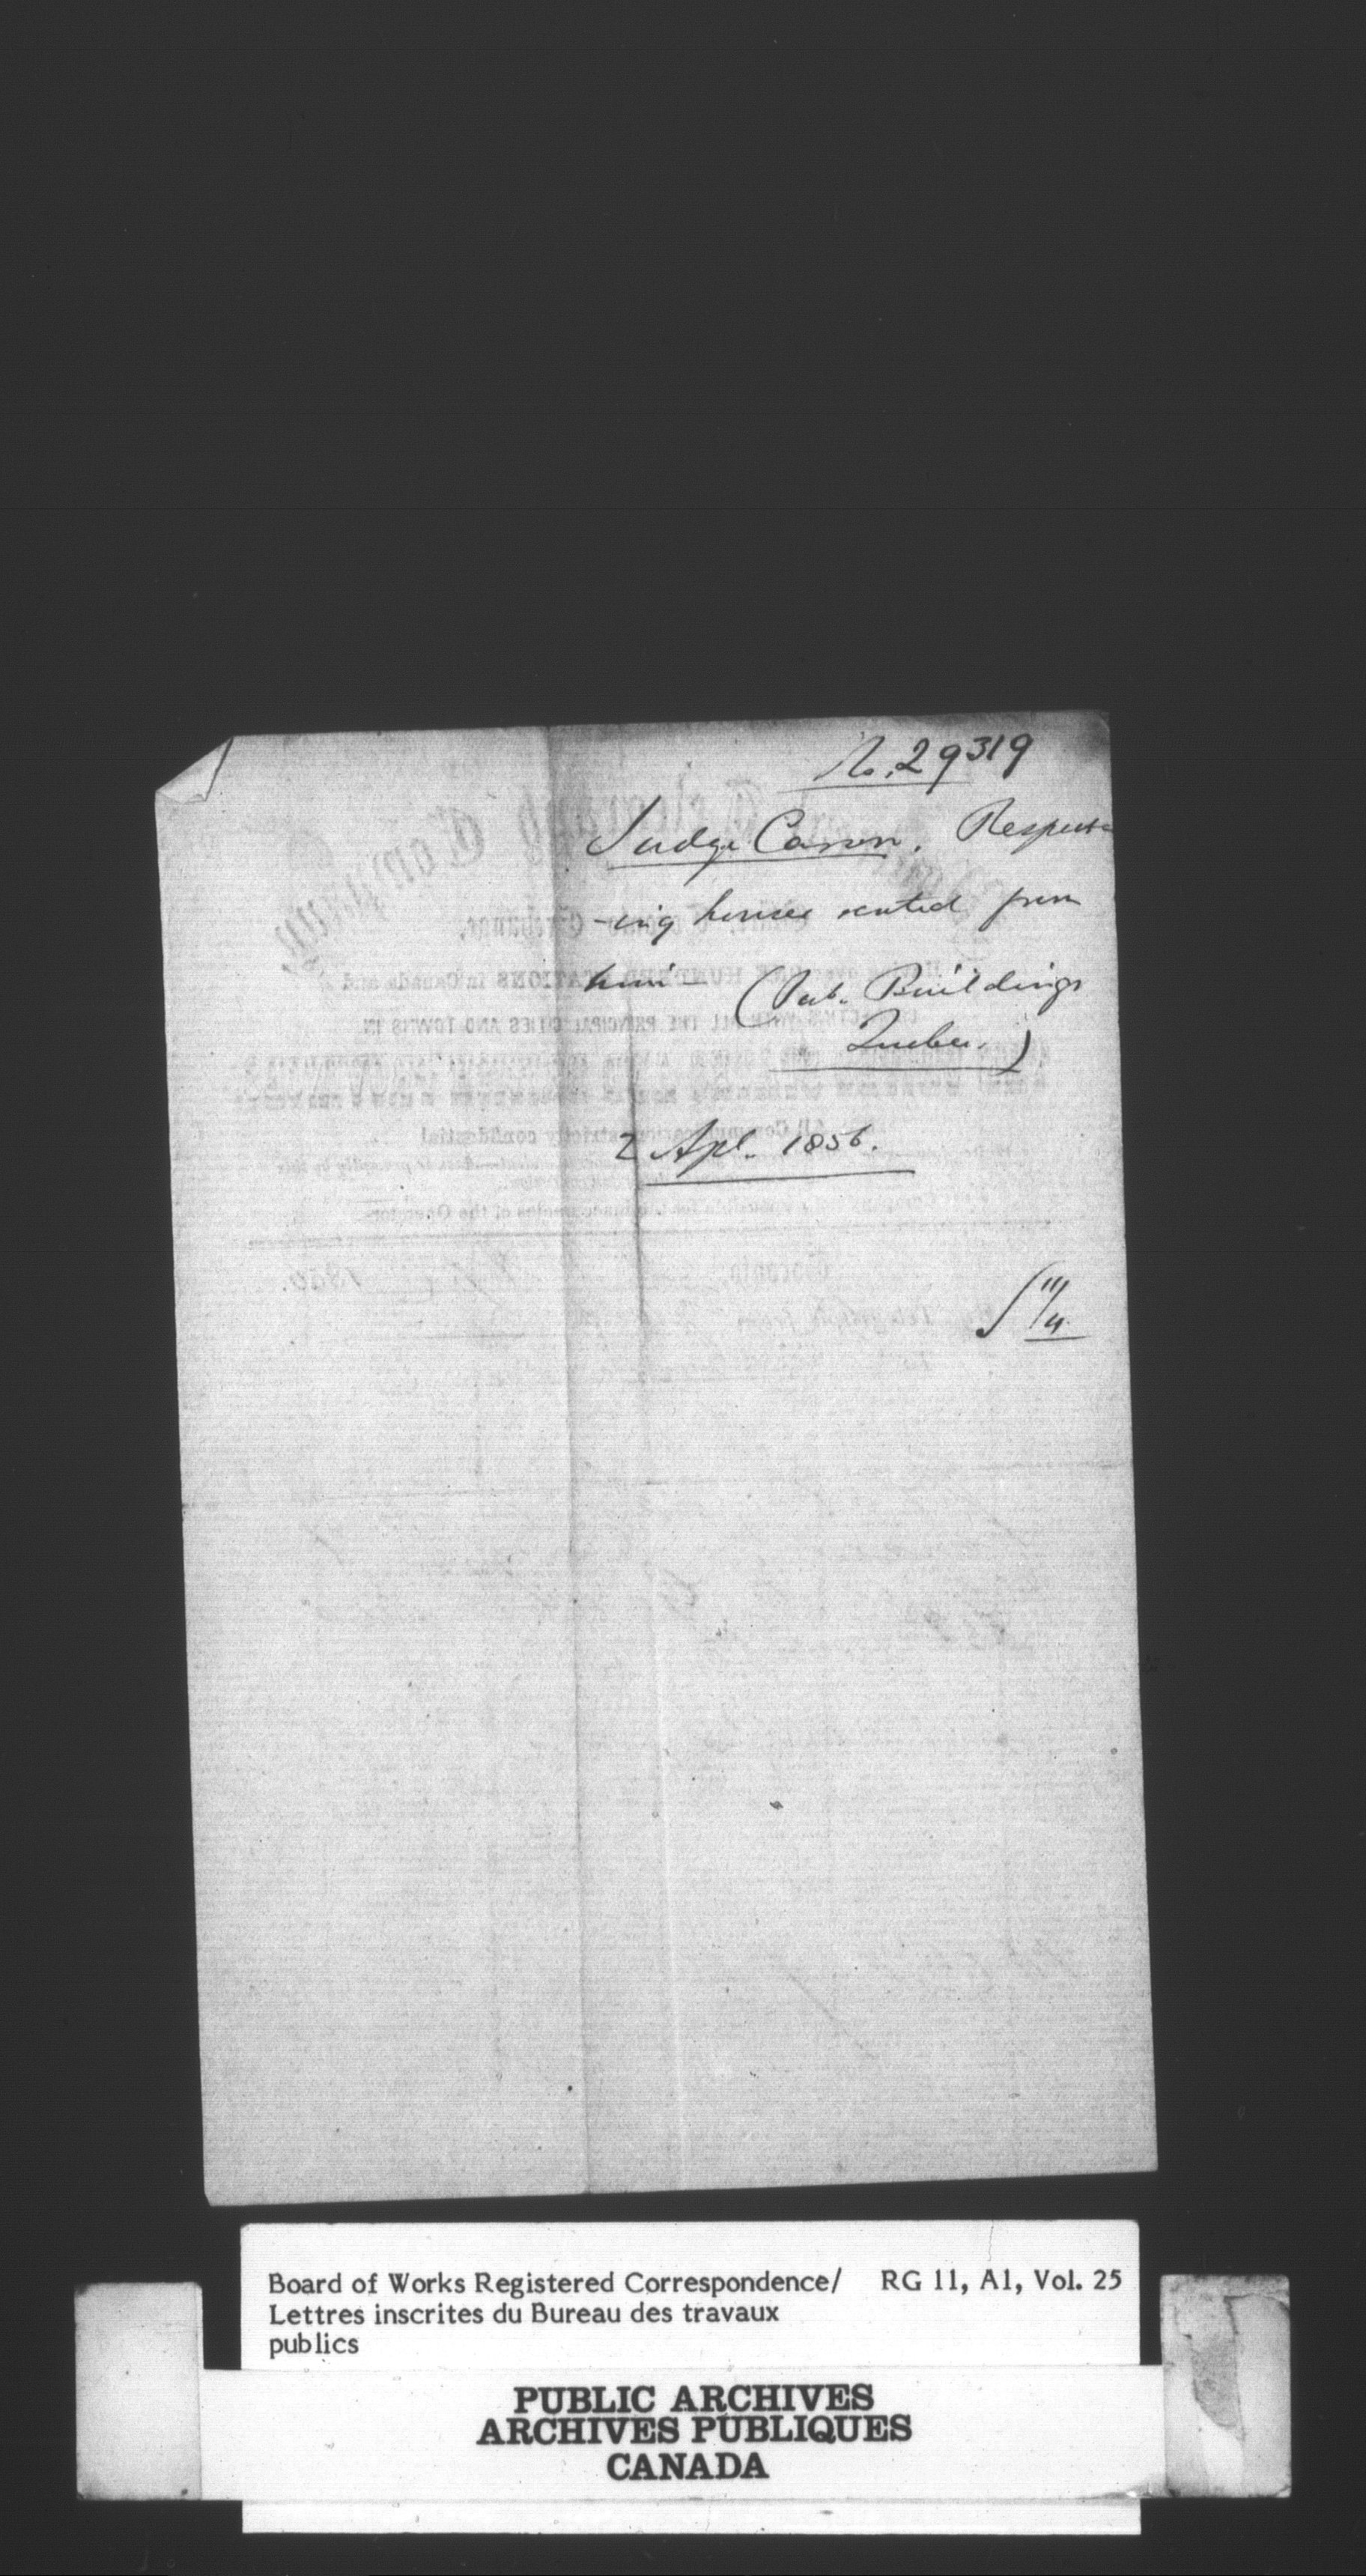 No. 29319
Judge Caron. Respect-
-ing houses rented from
him — (Pub. Buildings
Quebec.)
2 Apl. 1856.
11/4
Board of Works Registered Correspondence/ RG 11, A1, Vol. 25
Lettres inscrites du Bureau des travaux
publics
PUBLIC ARCHIVES
ARCHIVES PUBLIQUES
CANADA